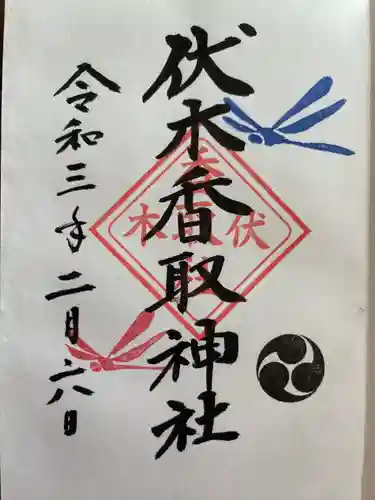 伏木香取神社
令和三年二月六日
伏木